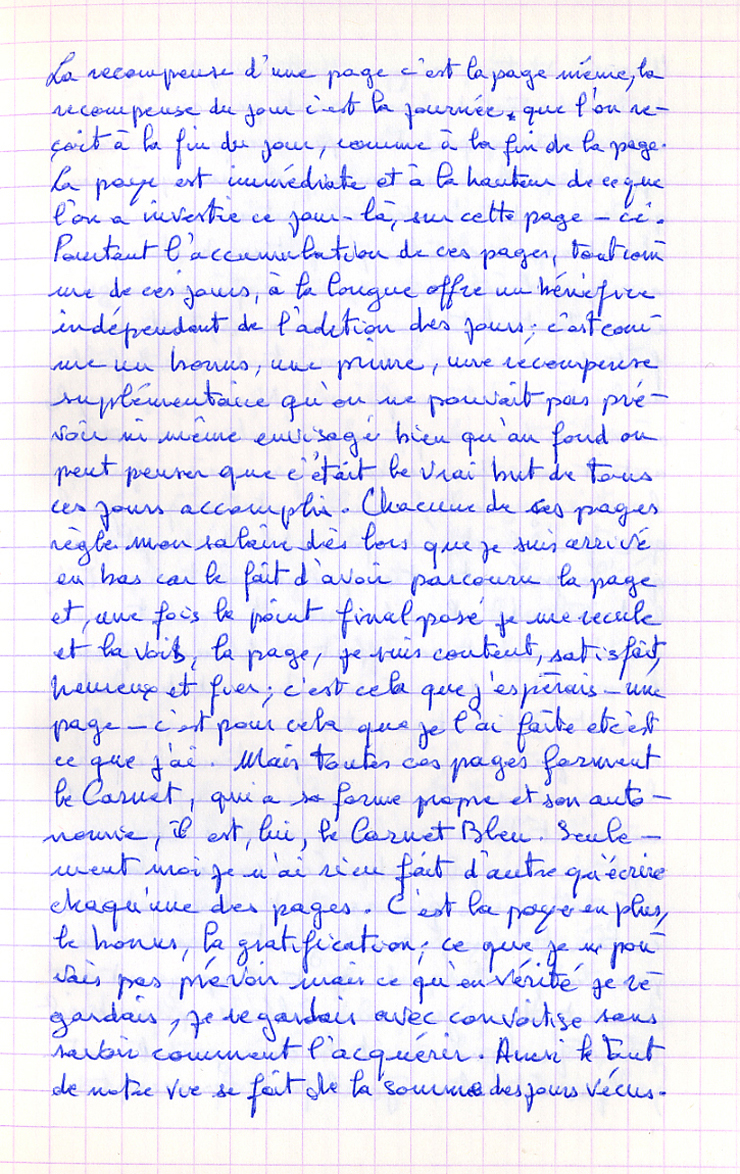 La recompense d'une page c'est la page même, la
recompense du jour c'est la journée, que l'on re-
çoit à la fin du jour, comme à la fin de la page.
La paye est immédiate et à la hauteur de ce que
l'on a investie ce jour-là, sur cette page-ci.
Pourtant l'accumulation de ces pages, tout com
me de ces jours, à la longue offre un bénéfice
indépendant de l'adition des jours; c'est com
me un bonus, une prime, une récompense
suplémentaire qu'on ne pouvait pas pré-
voir ni même envisagé bien qu'au fond on
peut penser que c'était le vrai but de tous
ces jours accomplis. Chacune de ces pages
règle mon salaire dès lors que je suis arrivé
en bas car le fait d'avoir parcouru la page
et, une fois le point final posé je me recule
et la vois, la page, je suis content, satisfait,
heureux et fier; c'est cela que j'espérais – une
page – c'est pour cela que je l'ai faite et c'est
ce que j'ai. Mais toutes ces pages forment
le Carnet, qui a sa forme propre et son auto-
nomie, il est, lui, le Carnet Bleu. Seule-
ment moi je n'ai rien fait d'autre qu'écrire
chaqu'une des pages. C'est la paye en plus,
le bonus, la gratification; ce que je ne pou
vais pas prévoir mais ce qu'en vérité je re
gardais, je regardais avec convoitise sans
savoir comment l'acquérir. Ainsi le tout
de notre vie se fait de la somme des jours vécus.